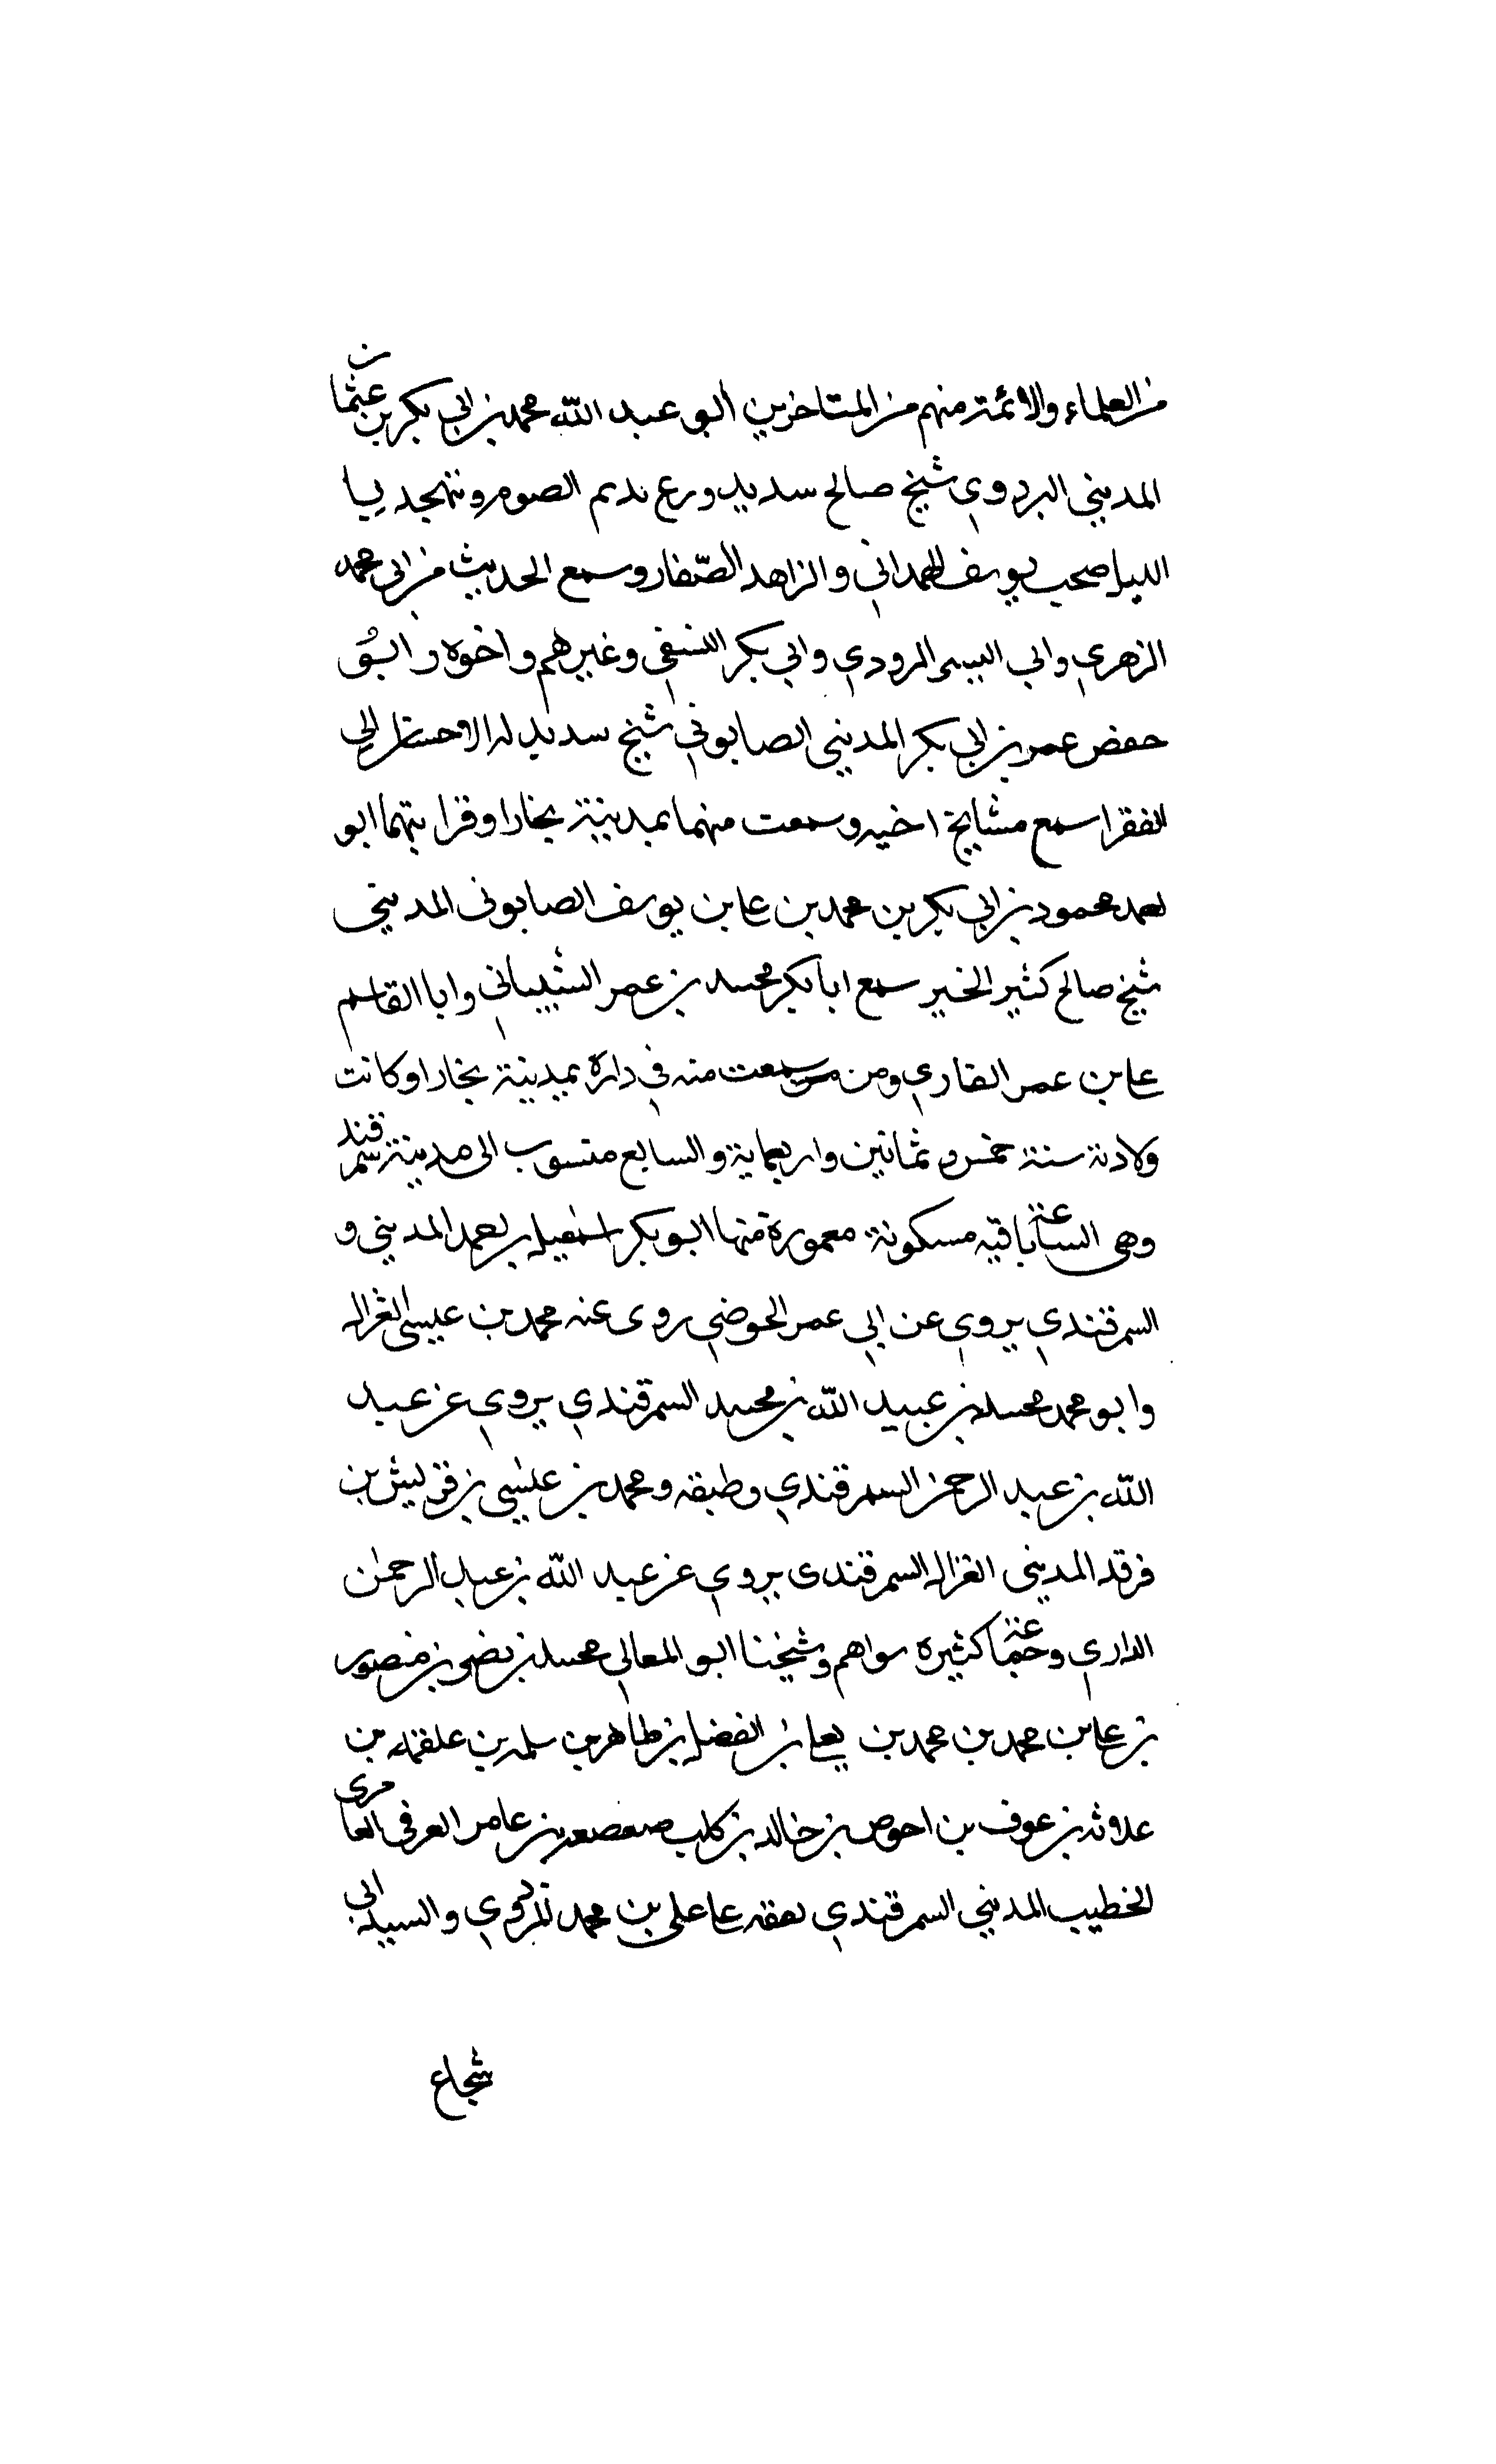 من العلماء والائمة منهم من المتاخرين ابو عبد الله محمد بن ابي بكر بن عثمان
المديني البردوي شيخ صالح سديد ورع يديم الصوم ويتهجد بيا
الليل صحب يوسف الهمداني والزاهد الصفار وسمع الحديث من ابي محمد
الزهري وابي اليسر المرودي وابي بكر النسفي وغيرهم واخوه وابو
حفص عمر بن ابي بكر المديني الصابوني شيخ سديد له الاحسان الي
الفقرا سمع مشايخ اخيه وسمعت منهما بمدينة بخارا وقرابتهما ابو
محمد محمود بن ابي بكر بن محمد بن علي بن يوسف الصابوني المديني
شيخ صالح كثير الخير سمع ابا بكر محمد بن عمر الشيباني وابا القاسم
علي بن عمر القاري ومن سمعت منه في داره بمدينة بخارا وكانت
ولادته سنة خمس وثمانين واربعماية والسابع منسوب الى مدينة سمرقند
وهي الساعة باقيه مسكونة معمورة منها ابو بكر اسمعيل بن احمد المديني و
السمرقندي يروي عن ابي عمر الحوضي روى عنه محمد بن عيسى الغزال
وابو محمد محمد بن عبيد الله بن محمد السمرقندي يروي عن عبد
الله بن عبد الرحمن السمرقندي وطبقه ومحمد بن عيسي بن قريش بن
فرقد المديني الغزال السمرقندى يروي عن عبد الله بن عبد الرحمن
الداري وجماعة كثيره سواهم وشيخنا ابو المعالي محمد بن نصر بن منصور
بن علي بن محمد بن محمد بن يعلي بن الفضل بن طاهر بن سلمه بن علقمه بن
علاثه بن عوف بن احوص بن خالد بن كلب صعصعه بن عامر العرفي العامري
الخطيب المديني السمرقندي تفقه علي علي بن محمد البزدوي والسيد ابي
شجاع